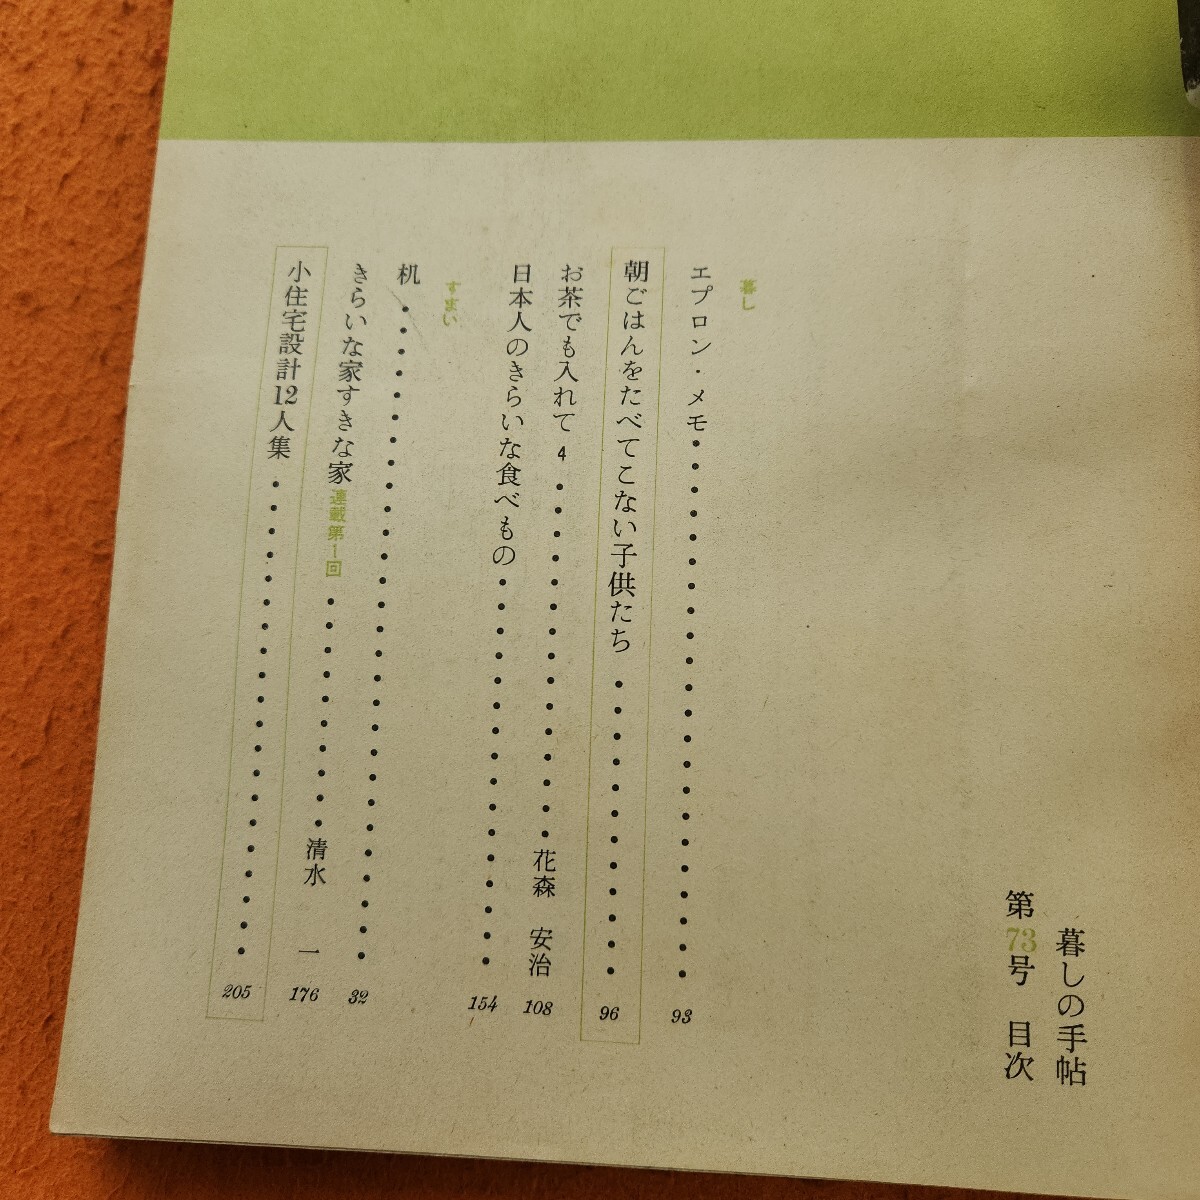 暮しの手帖
第73号 目次
暮し
エプロン・メモ 93
朝ごはんをたべてこない子供たち 96
お茶でも入れて 4 花森 安治 108
日本人のきらいな食べもの 154
すまい
机 32
きらいな家すきな家 連載第1回 清水 一 176
小住宅設計12人集 205